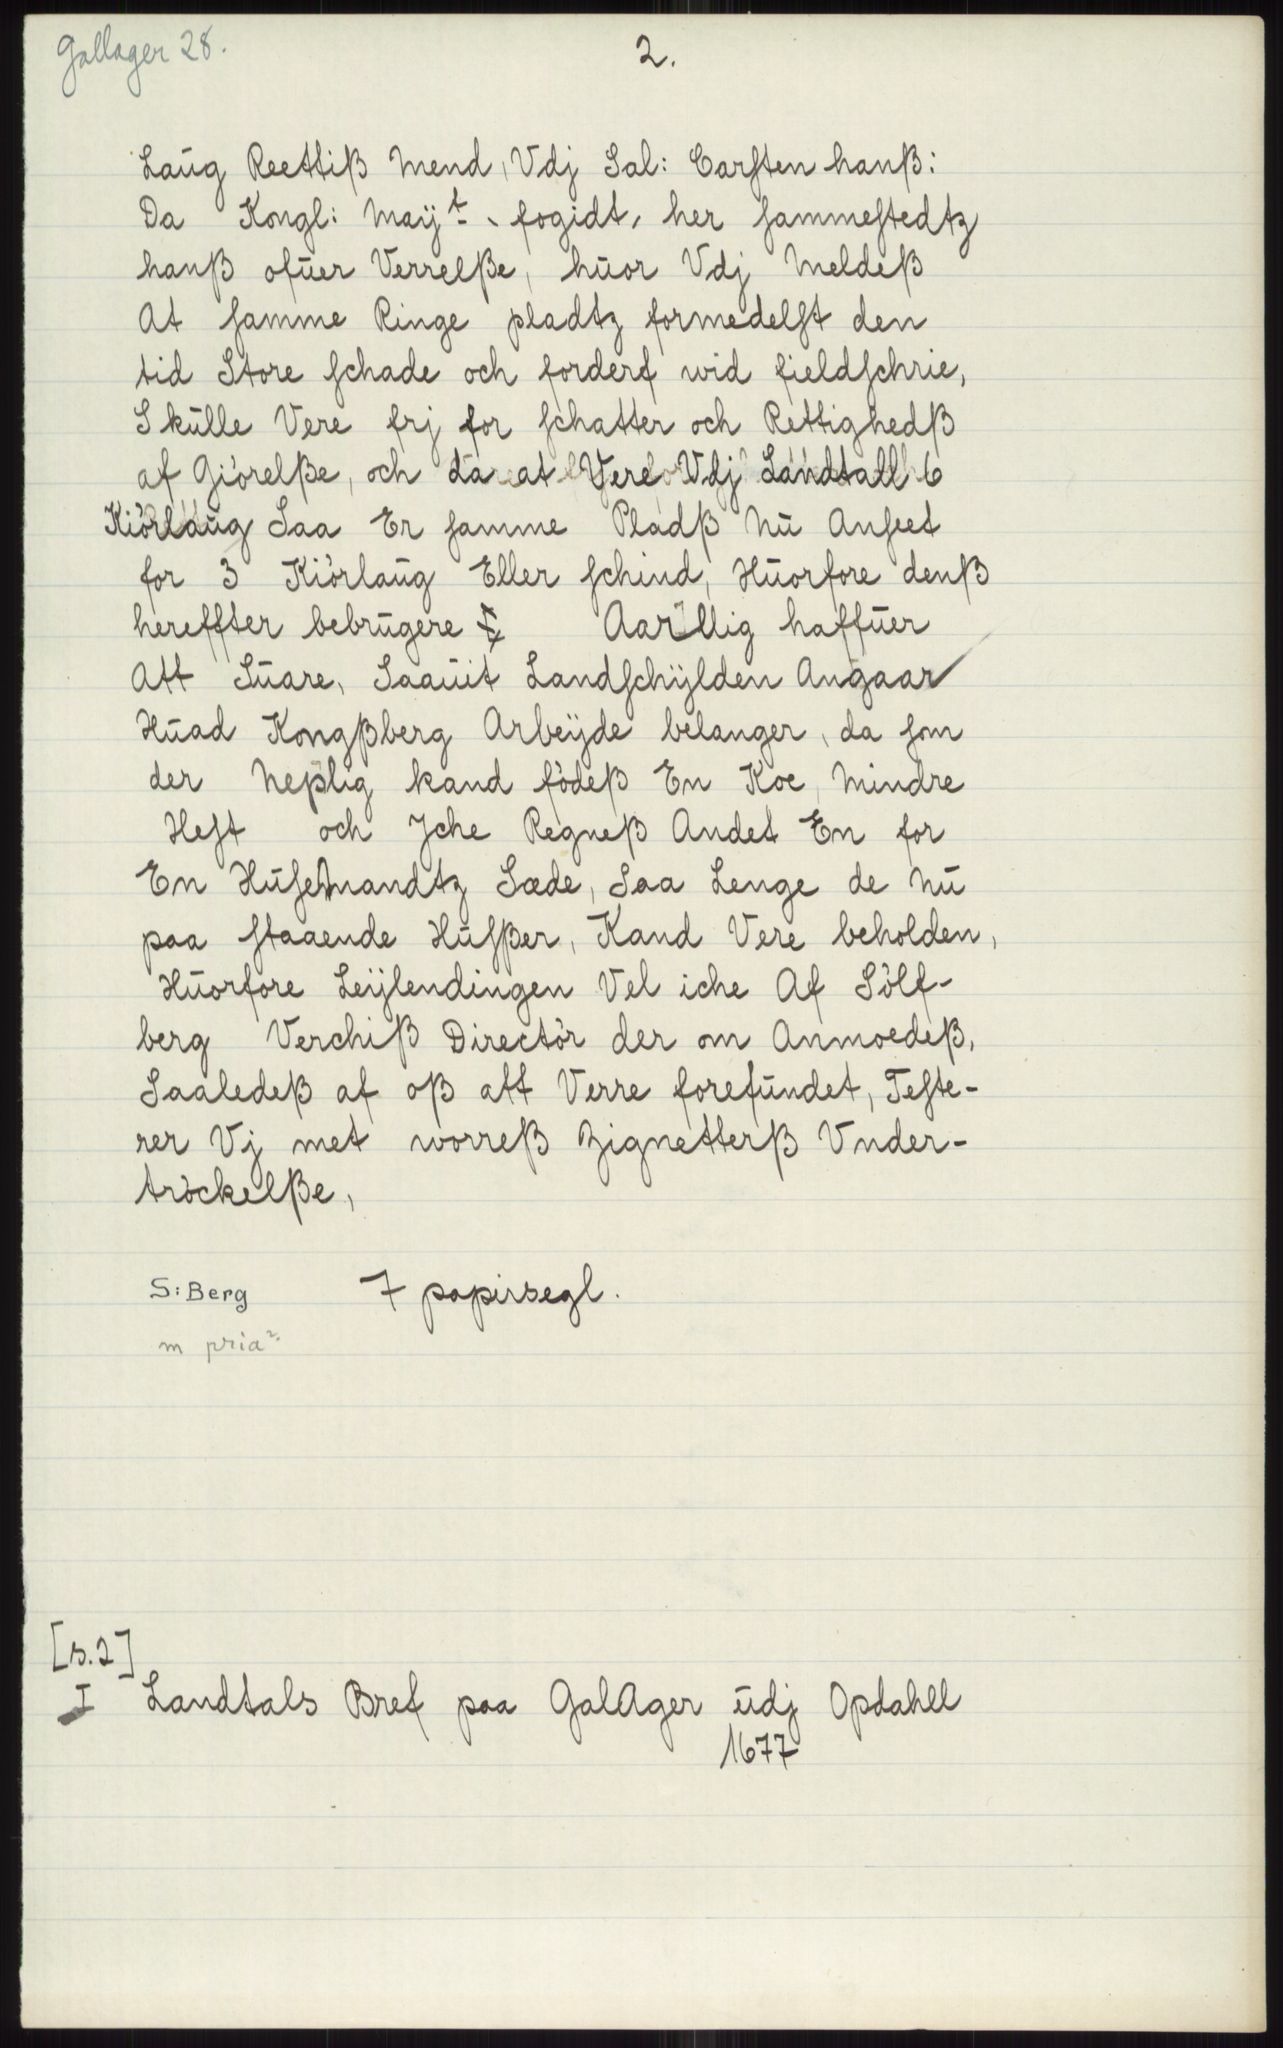 Gallager 28.
2.
Laug Reettiß Mend, Vdj Sal: Carsten hanß:
Da Kongl: Maÿt fogidt, her sammestedtz
hanß ofuer Verrelße, huor Vdj Meldeß
At samme Ringe pladtz formedelst den
tid Store schade och forderf wid fieldschrie,
Skulle Vere frj for schatter och Rettighedß
af Giörelße, och da at Vere Vdj Landtall 6
Kiörlaug Saa Er samme Pladß Nu Anseet
for 3 Kiörlaug Eller schind, Huorfore denß
hereffter bebrugere Aarllig haffuer
Att Suare, Saauit Landschÿlden Angaar
Huad Kongßberg Arbeÿde belanger, da som
der Neplig kand födeß En Koe, Mindre
Hest och Jche Regneß Andet En for
En Husemandtz Sæde, Saa Lenge de Nu
paa staaende Husßer, Kand Vere beholden,
Huorfore Leÿlendingen Vel iche Af Sölf-
berg Verchiß Directör der om Anmoedeß,
Saaledeß af oß att Verre forefundet, Teste-
rer Vj met worreß Zignetterß Vnder-
tröckelße,
S: Berg 7 papirsegl.
m pria
[s.2]
I Landtals Bref paa GalAger udj Opdahll
1677